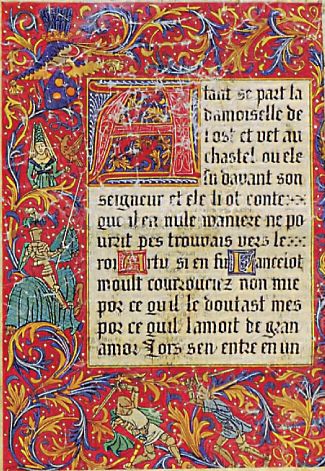 A tant se part la
damoiselle de
lost et vet au
chastel ou ele
fu davant son
seigneur et ele li ot conte
que il en nule maniere ne po
urrit pes trouvais vers le
roi Artu si en fu lanceiot
moult courrouciez non mie
por ce quil le doutast mes
por ce quil lamoit de gran
amor Lors sen entre en un